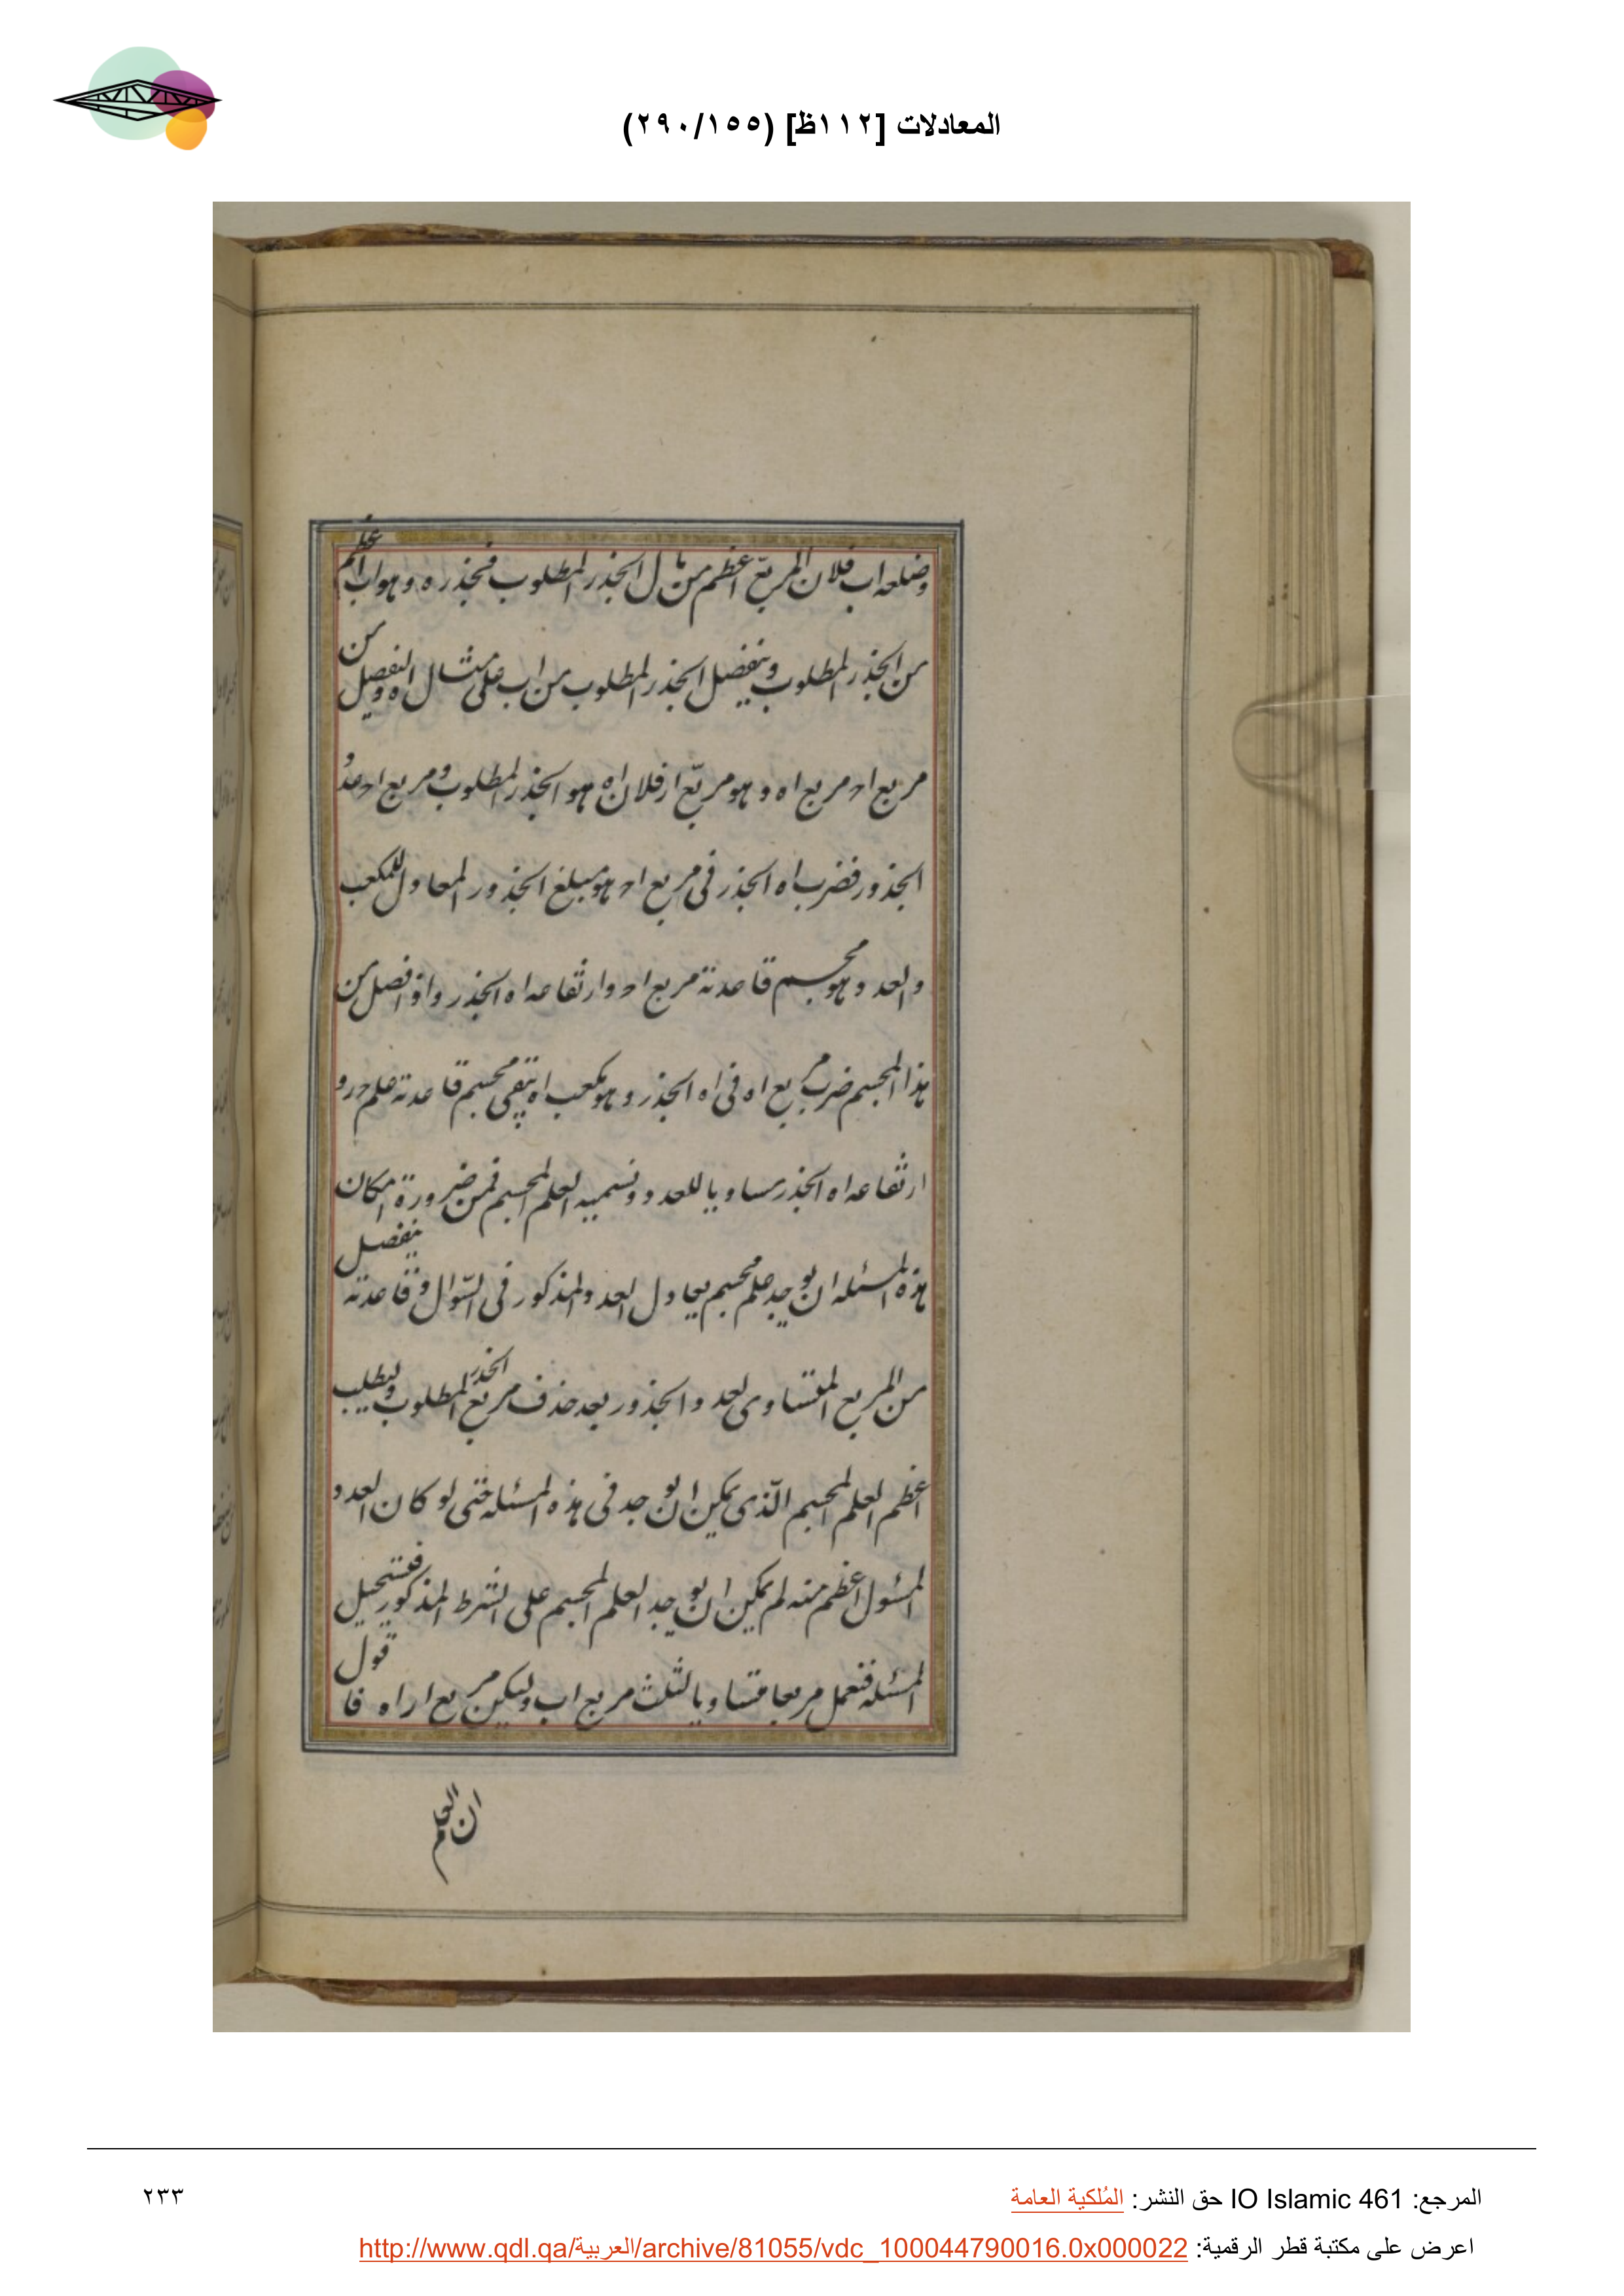 المعادلات [١١٢ظ] (٢٩٠/١٥٥)
وضلعه اب فلان المربع اعظم من مال الجذر المطلوب فجذره وهو اب اعظم
من الجذر المطلوب وينفصل الجذر المطلوب من اب على مثال اه ونفصل من
مربع اح مربع اه وهو مربع ار فلان اه هو الجذر المطلوب ومربع اح عدد
الجذور فضرب اه الجذر في مربع اح هو مبلغ الجذور المعادل للمكعب
والعدد وهو مجسم قاعدته مربع اح وارتفاعه اه الجذر واذا فصل من
هذا المجسم ضرب مربع اه في اه الجذر وهو مكعب اه يبقى مجسم قاعدته علم حر و
ارتفاعه اه الجذر مساويا للعدد ونسميه العلم المجسم فمن ضرورة امكان
هذه المسئله ان يوجد علم مجسم يعادل العدد المذكور في السّؤال وقاعدته ينفصل
من المربع المتساوى لعدد الجذور بعد حذف مربع الجذر المطلوب ولنطلب
اعظم العلم المجسم الّذى يمكن ان يوجد فى هذه المسئله حتى لو كان العدد
المسئول اعظم منه لم يمكن ان يوجد العلم المجسم على الشرط المذكور فتستحيل
المسئله فنعمل مربعا متساويا لثلث مربع اب وليكن مربع ار اه فاقول
ان العلم
المرجع: IO Islamic 461 حق النشر: المُلكية العامة
٢٣٣
اعرض على مكتبة قطر الرقمية: http://www.qdl.qa/العربية/archive/81055/vdc_100044790016.0x000022